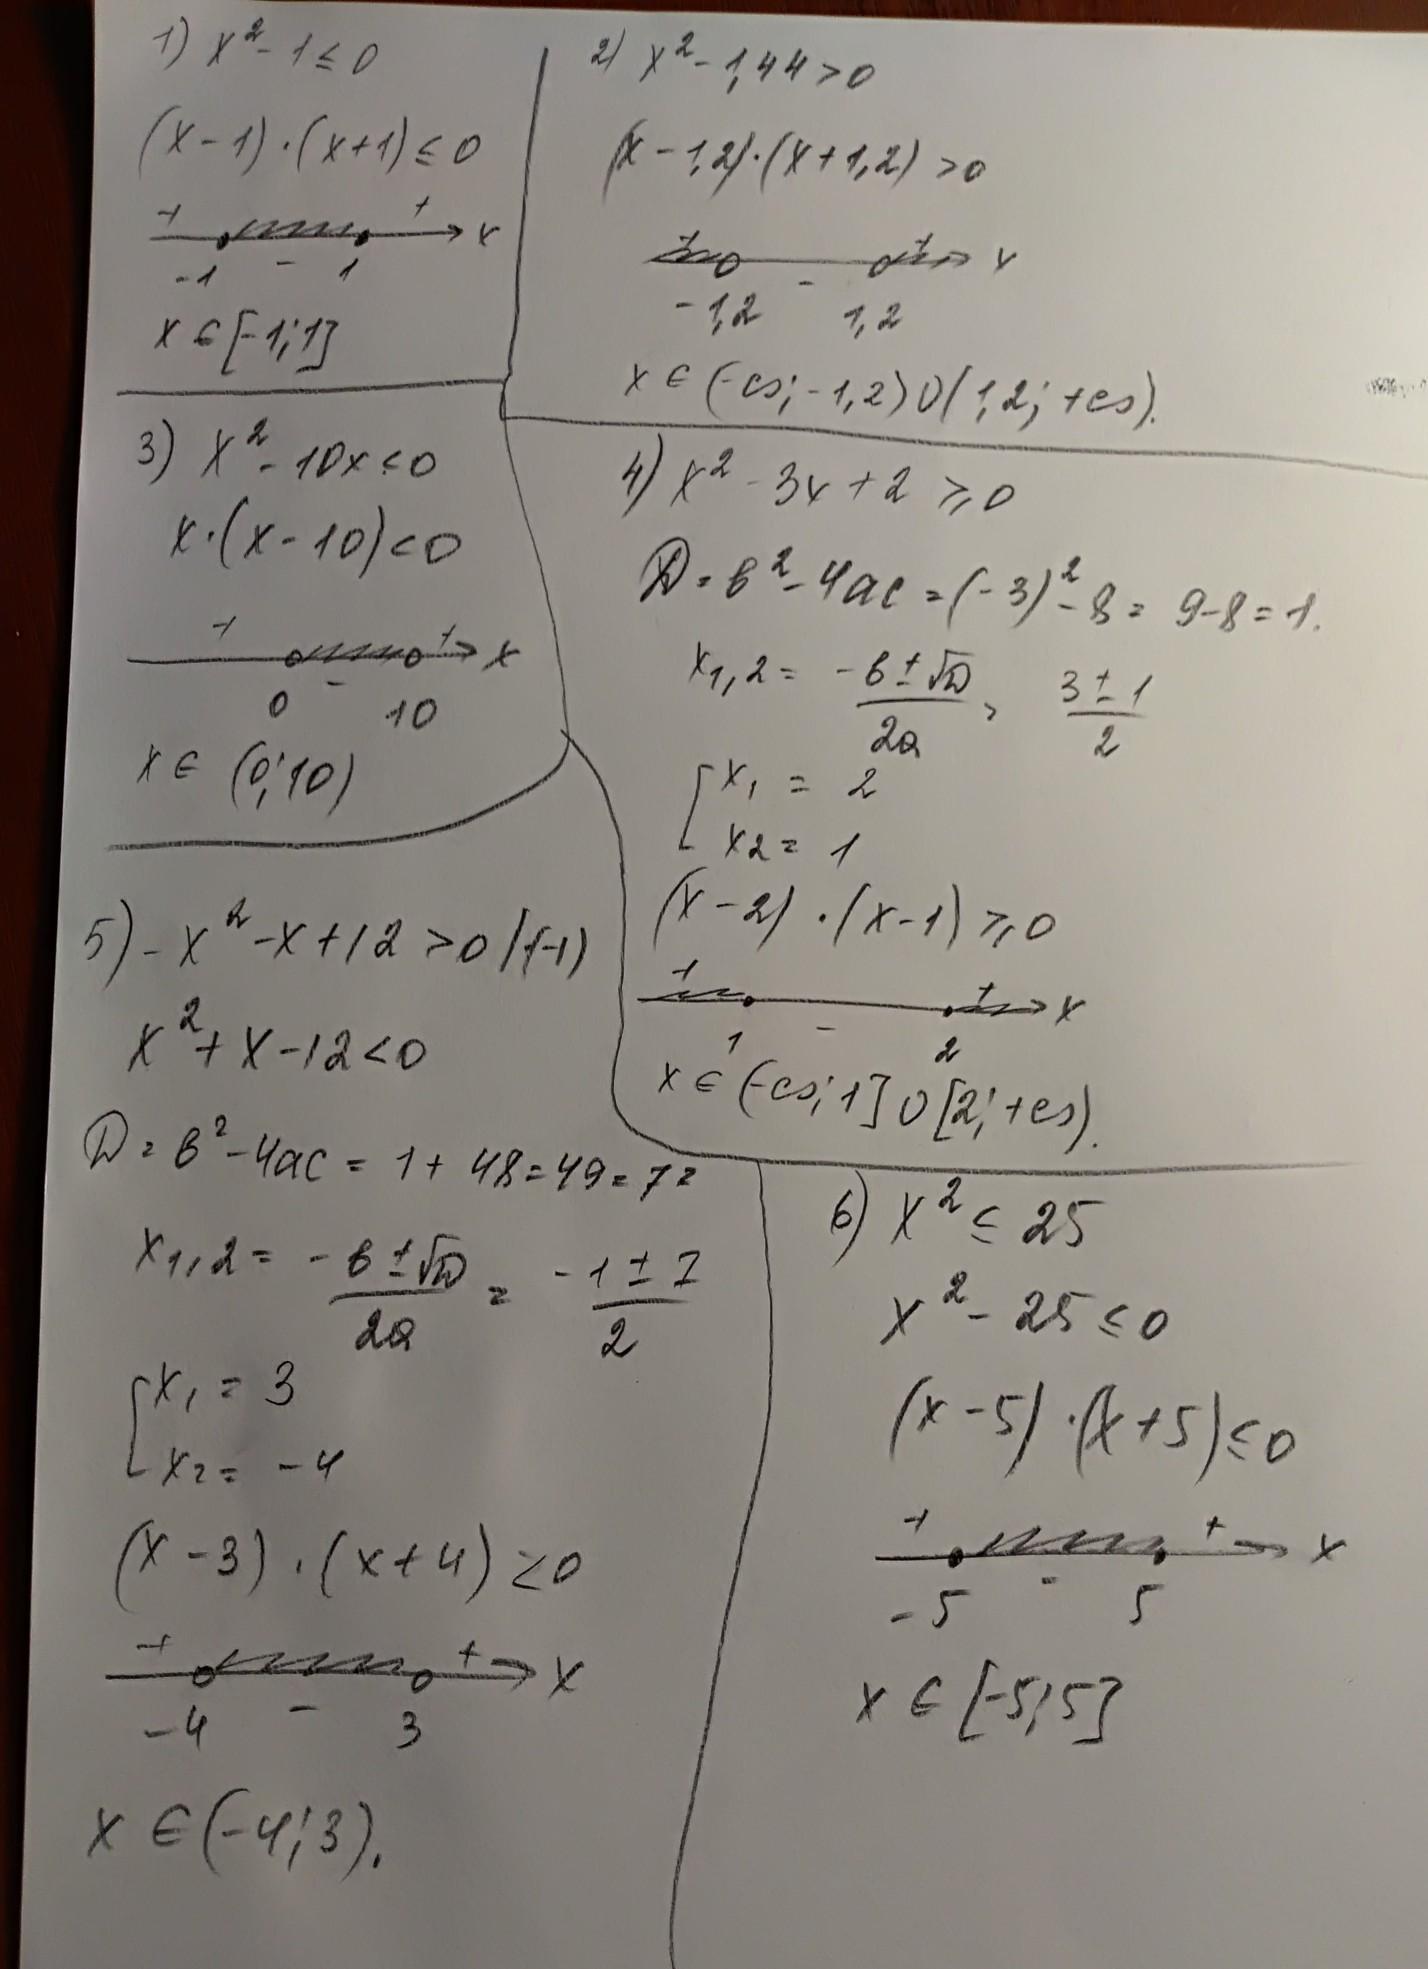 1) x² - 1 ≤ 0
(x - 1) · (x + 1) ≤ 0
+ + x
-1 - 1
x ∈ [-1; 1]
2) x² - 1,44 > 0
(x - 1,2) · (x + 1,2) > 0
+ + x
-1,2 - 1,2
x ∈ (-∞; -1,2) ∪ (1,2; +∞).
3) x² - 10x < 0
x · (x - 10) < 0
+ + x
0 - 10
x ∈ (0; 10)
4) x² - 3x + 2 ≥ 0
D = b² - 4ac = (-3)² - 8 = 9 - 8 = 1.
x1,2 = (-b ± √D)/2a, (3 ± 1)/2
[ x1 = 2
x2 = 1
(x - 2) · (x - 1) ≥ 0
+ + x
1 - 2
x ∈ (-∞; 1] ∪ [2; +∞).
5) - x² - x + 12 > 0 | (-1)
x² + x - 12 < 0
D = b² - 4ac = 1 + 48 = 49 = 7²
x1,2 = (-b ± √D)/2a = (-1 ± 7)/2
[ x1 = 3
x2 = -4
(x - 3) · (x + 4) < 0
+ + x
-4 - 3
x ∈ (-4; 3).
6) x² ≤ 25
x² - 25 ≤ 0
(x - 5) · (x + 5) ≤ 0
+ + x
-5 - 5
x ∈ [-5; 5]